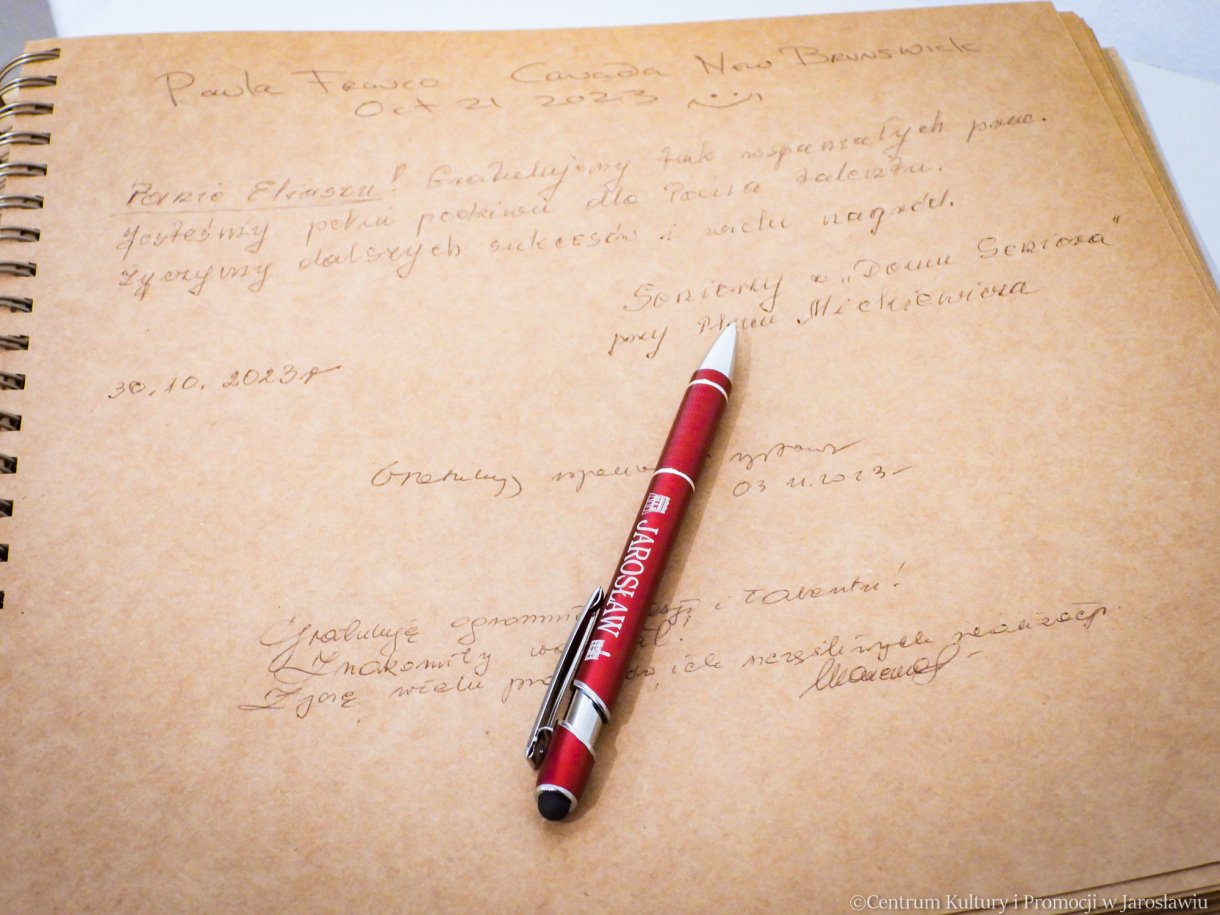 Paula Franco Canada New Brunswick
Oct 21 2023
Panie Eliaszu! Gratulujemy tak wspaniałych prac.
Jesteśmy pełni podziwu dla Pana talentu.
Życzymy dalszych sukcesów i wielu nagród.
Seniorzy z „Domu Seniora”
przy Mickiewicza
30.10.2023r
Gratuluję
03 11.2023
Gratuluję i talentu!
Znakomity
Życzę wielu ich
JAROSŁAW
©Centrum Kultury i Promocji w Jarosławiu